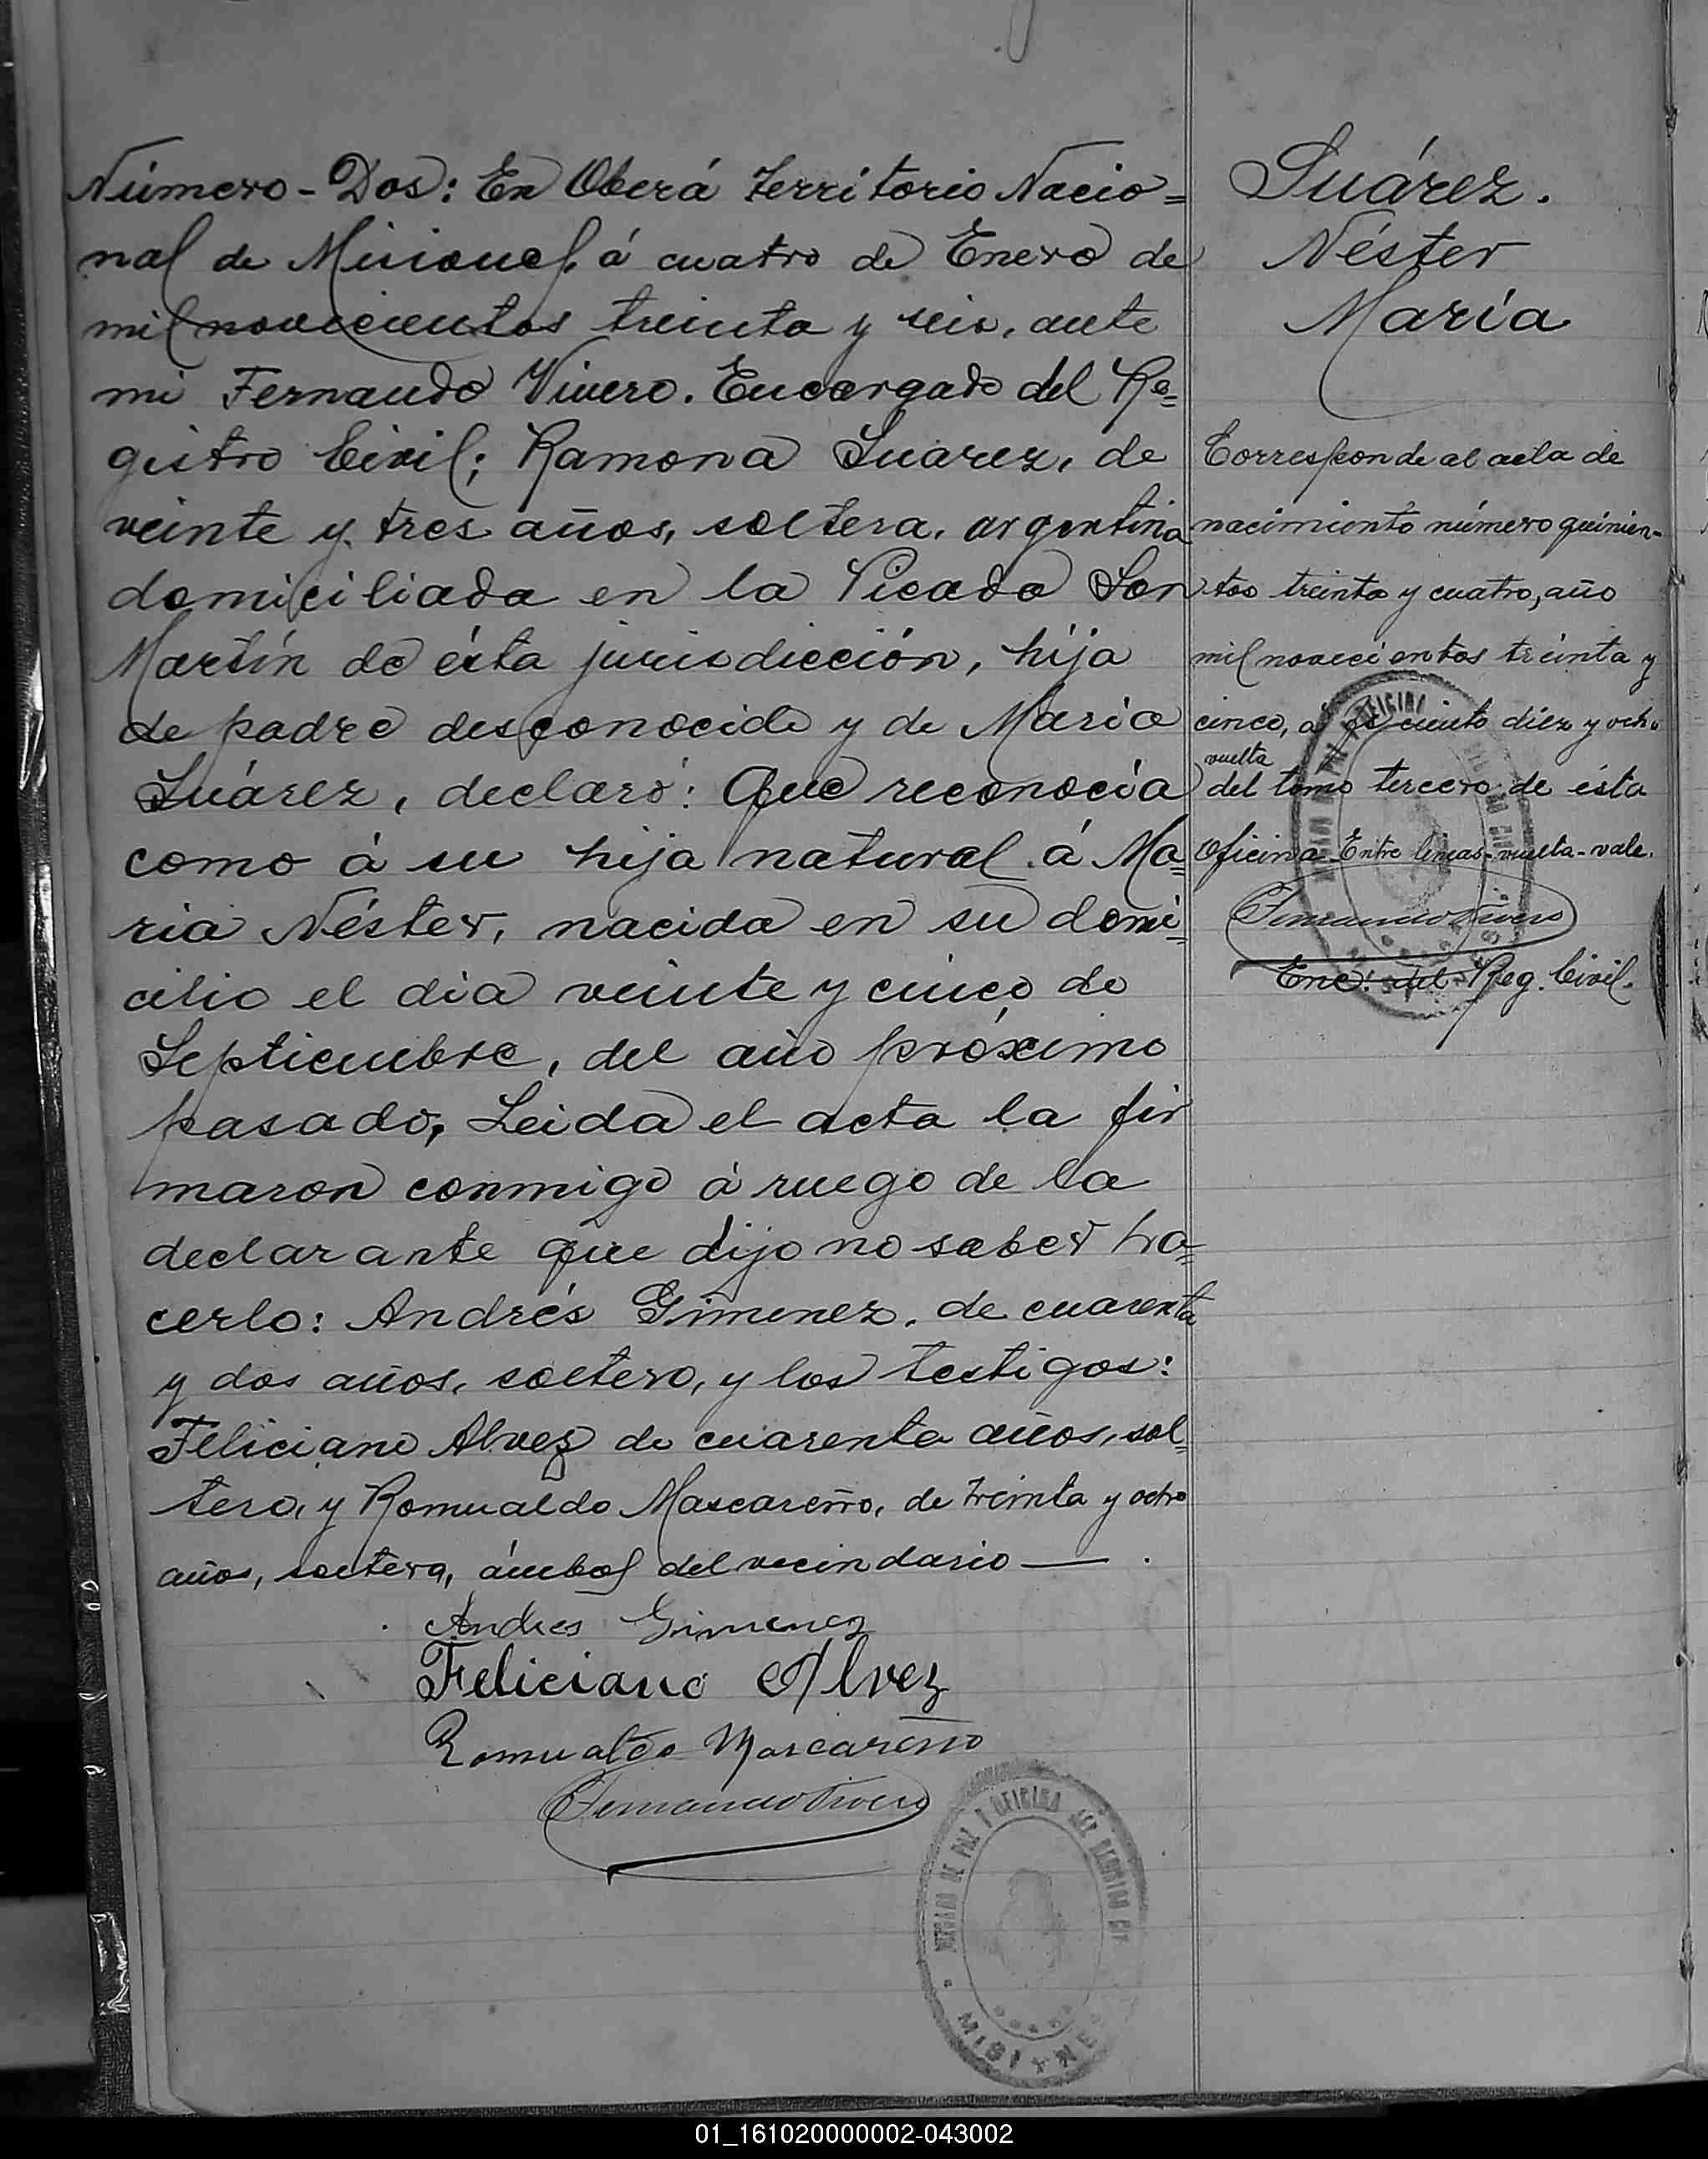 Número - Dos: En Oberá Territorio Nacio=
nal de Misiones, á cuatro de Enero de
mil novecientos treinta y seis, ante
mi Fernando Vivero. Encargado del Re=
gistro Civil; Ramona Suarez, de
veinte y tres años, soltera, argentina
domiciliada en la Picada San
Martín de ésta jurisdicción, hija
de padre desconocido y de María
Suárez, declaró: Que reconocía
como á su hija natural á Ma=
ria Néster, nacida en su domi=
cilio el dia veinte y cinco de
Septiembre, del año próximo
pasado, Leida el acta la fir
maron conmigo á ruego de la
declarante que dijo no saber ha=
cerlo: Andrés Gimenez, de cuarenta
y dos años, soltero, y los testigos:
Feliciano Alvez de cuarenta años, sol=
tero, y Romualdo Mascareño, de treinta y ocho
años, soltero, ámbos del vecindario — .
Andres Gimenez
Feliciano Alvez
Romualdo Mascareño
Fernando Vivero
JUZGADO DE PAZ Y OFICINA DEL REGISTRO CIVIL
MISIONES
Suárez.
Néster
María
Corresponde al acta de
nacimiento número quinien-
tos treinta y cuatro, año
mil novecientos treinta y
cinco, al ciento diez y ocho
vuelta
del tomo tercero de ésta
Oficina. Entre lineas-vuelta-vale.
Fernando Vivero
Enc. del Reg. Civil.
01_161020000002-043002